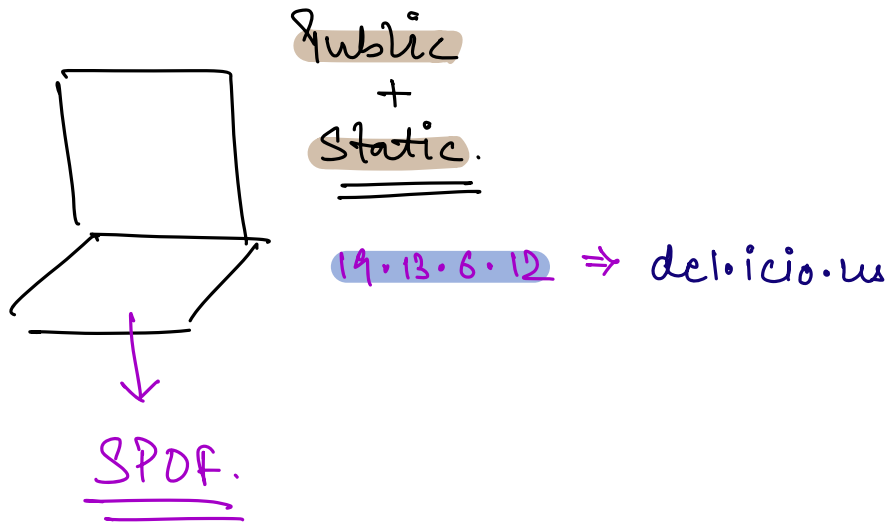 Public
+
Static.
19.13.6.12 ⇒ del.icio.us
SPOF.